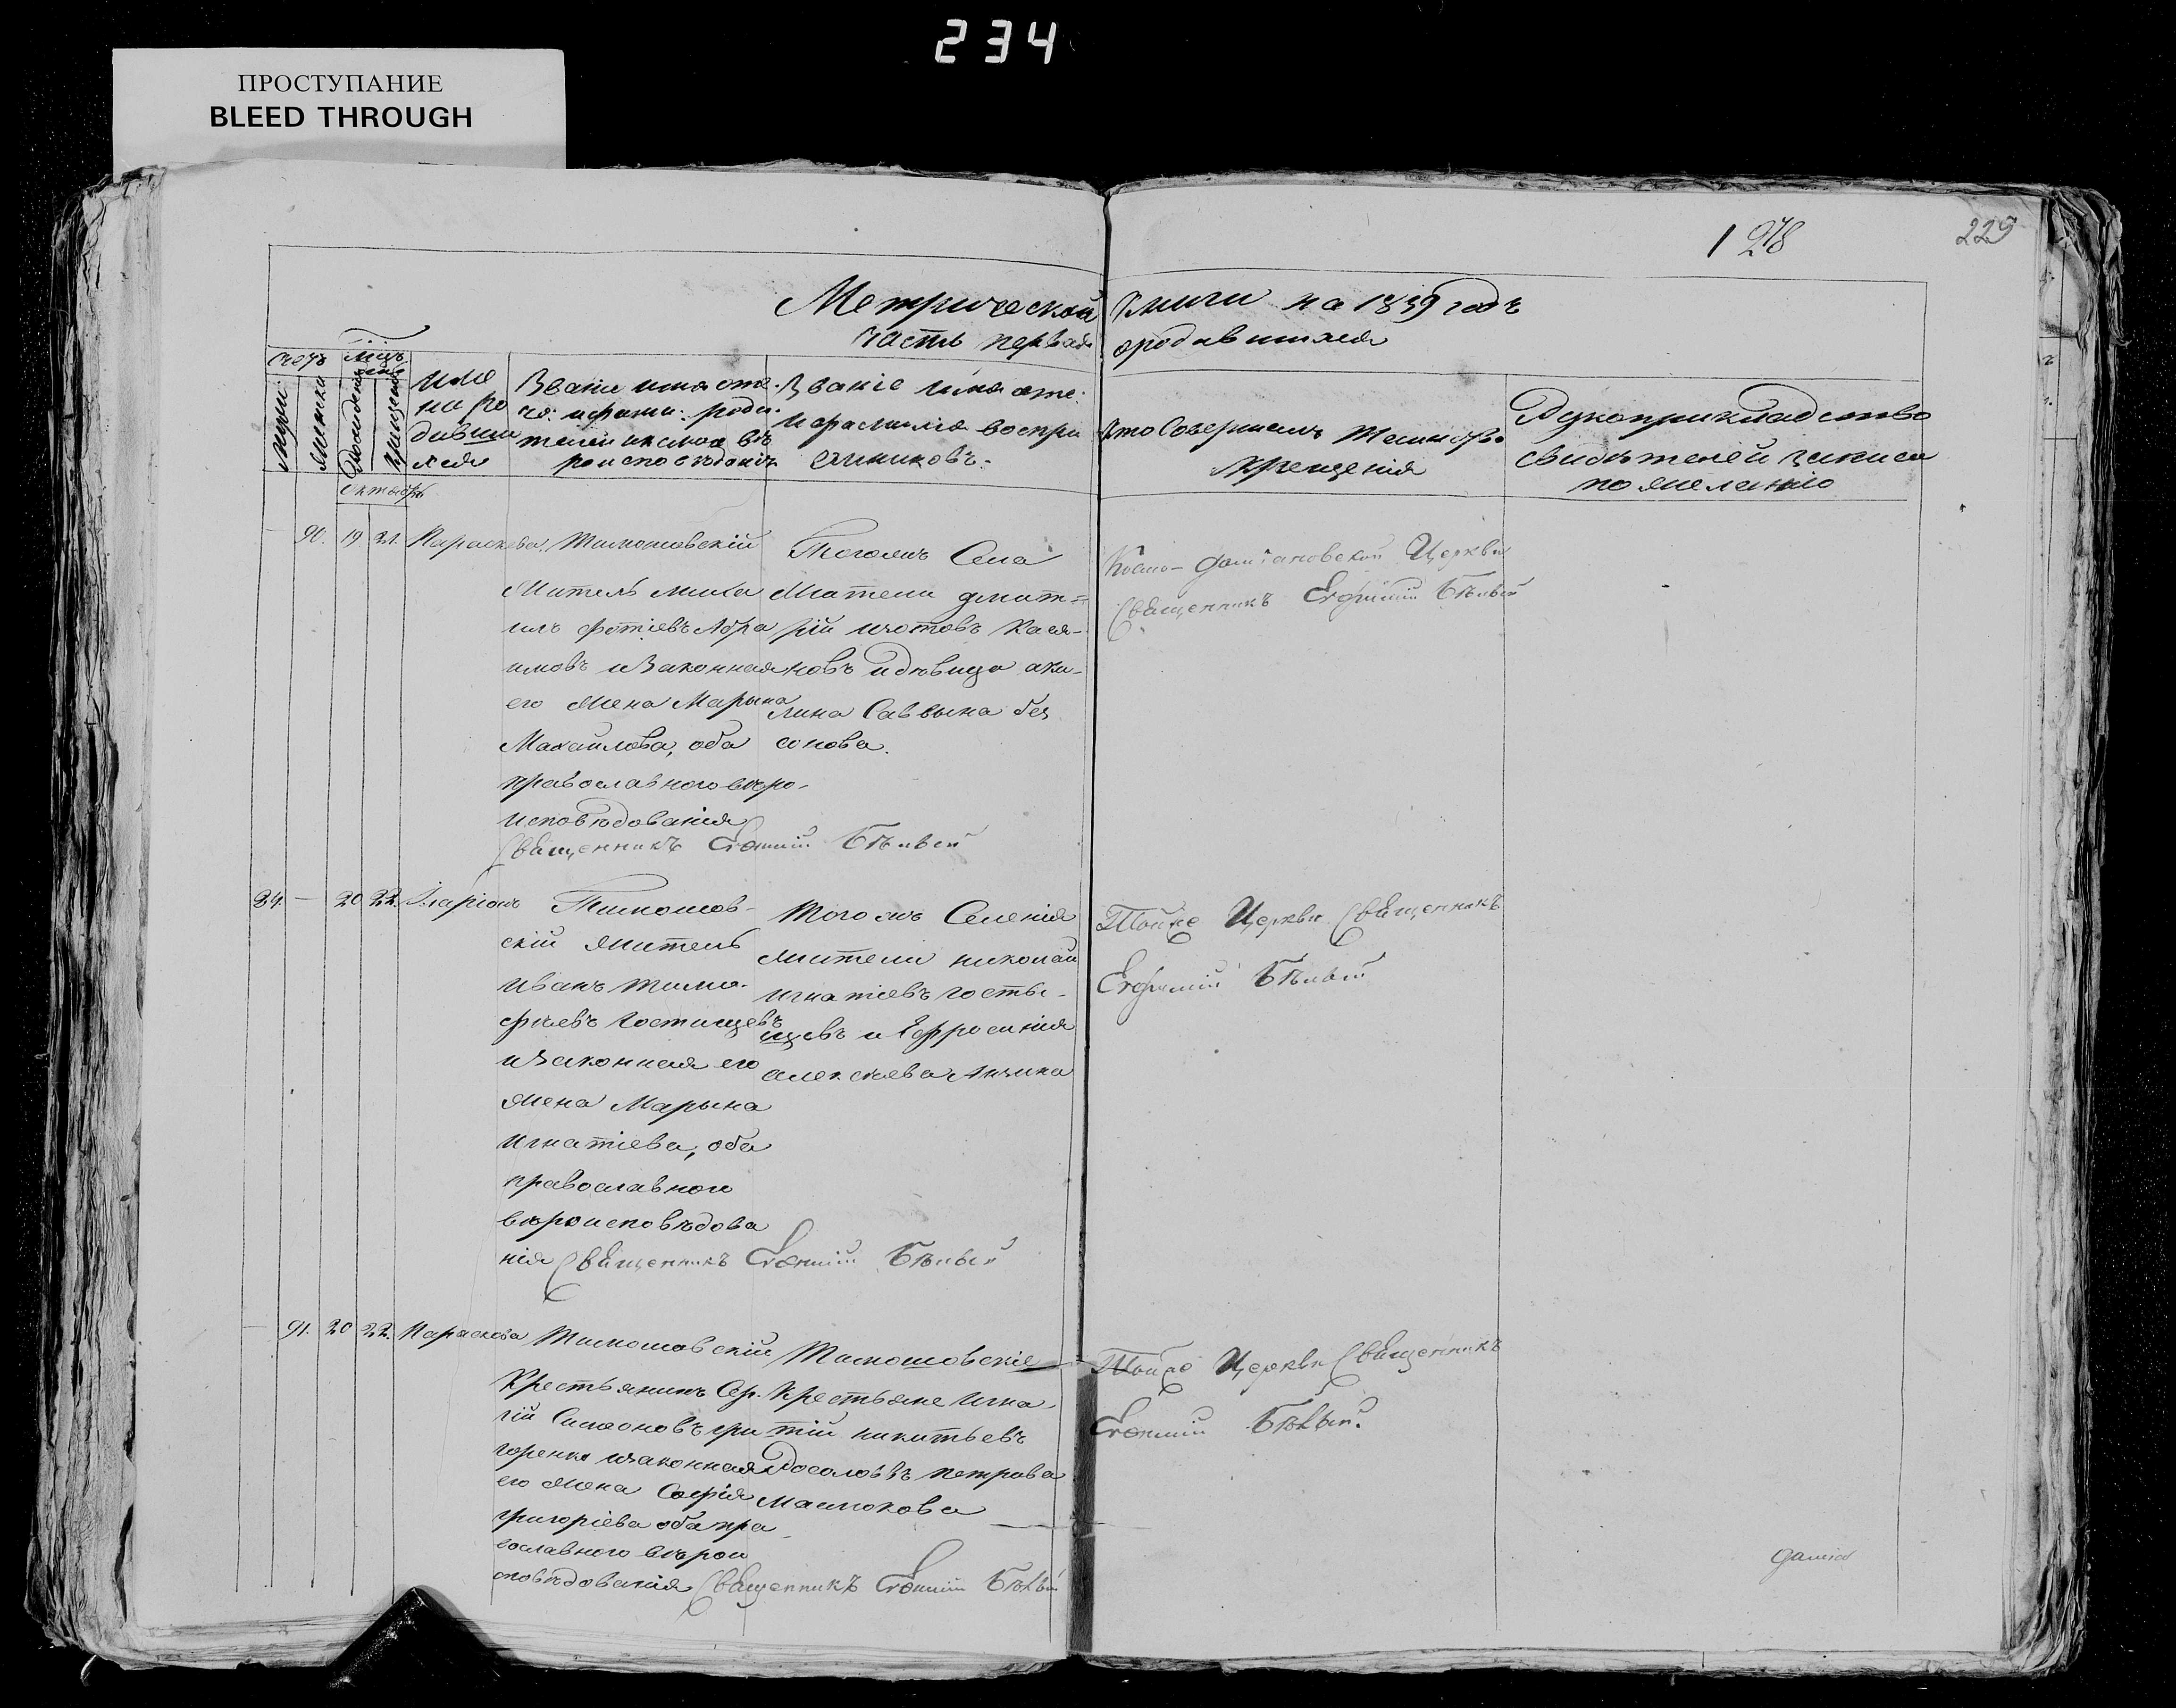 234
ПРОСТУПАНИЕ
BLEED THROUGH
1 218
229
Метрической Книги на 1839 годъ
часть первая ородившихся
Мцъ
Рожденія
Крещенія
Имена родившихся
Званіе имя оте:
чо: и фами: роди
телей и какого вѣ
роисповѣданія
Званіе имя оте:
и фамилія воспри
емниковъ.
Кто Совершалъ Таинство
крещенія
Рукоприкладство
свидѣтелей записи
по желанію
октябрь
90. 19 21. Параскева.
Тимошовскій
Житель Миха
илъ Фотіевъ Абра
имовъ и Законная
его Жена Марина
Михаилова, оба
православного вѣро-
исповѣдованія
Священникъ Евфимій Бѣлый
Тогожъ Села
Жители Дмит=
рій Изотовъ Кася-
новъ и вдовица Аку-
лина Саввына без
сонова.
Космо-Даміановской Церкви
Священникъ Евфимій Бѣлый
89. — 20 22. Иларіонъ
Тимошов-
скій Житель
Иванъ Тимо-
фѣевъ Гостищевъ
и Законная его
Жена Марына
Игнатіева, оба
православного
вѣроисповѣдова
нія Священникъ Евфимій Бѣлый
Тогожъ Селенія
Жители Николай
Игнатіевъ Гости-
щевъ и Ефросинія
Алексѣева
Тойже Церкви Священникъ
Евфимій Бѣлый
— 91. 20 22. Параскева
Тимошовскій
Крестьянинъ Сер-
гій Симоновъ Гри
горенко и законная
его Жена Софія
Григоріева оба пра
вославного вѣрои
сповѣдованія Священникъ Евфимій Бѣлый
Тимошовскіе
Крестьяне Игна-
тій Никитьевъ
Петрова
Тойже Церкви Священникъ
Евфимій Бѣлый.